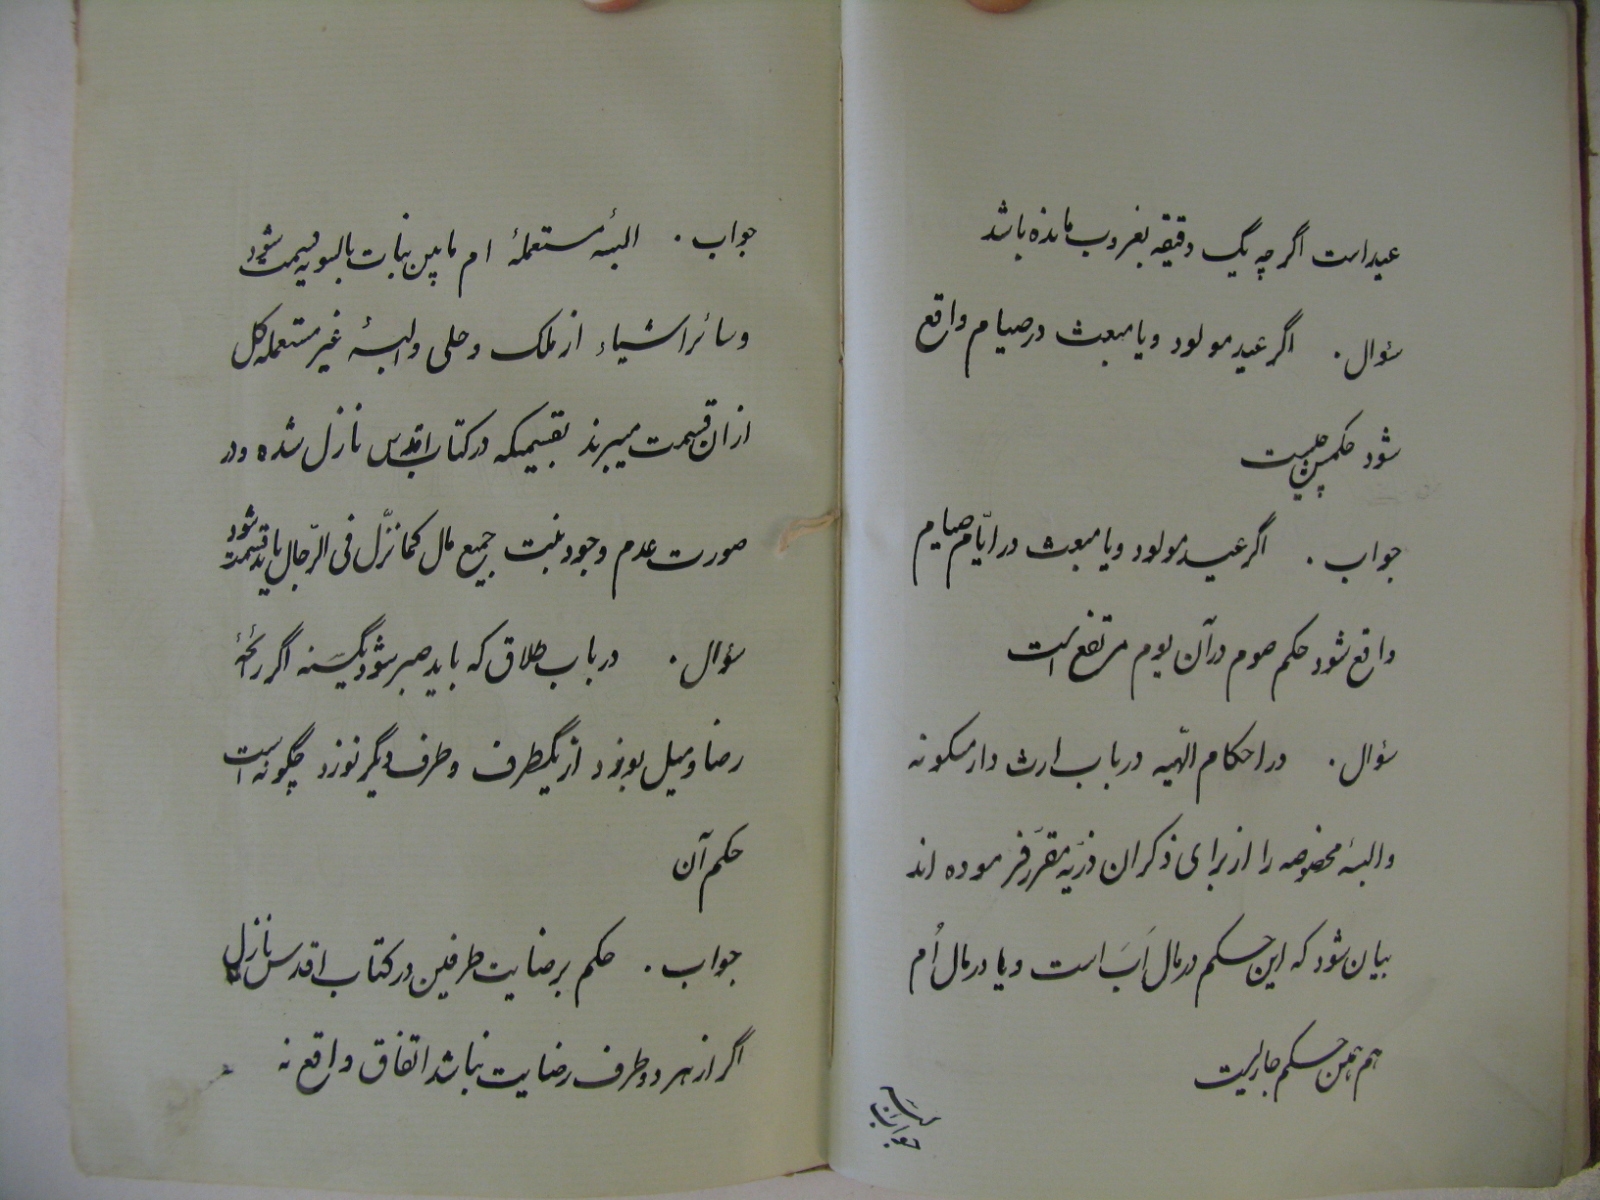 عید است اگر چه یک دقیقه بغروب مانده باشد
سؤال . اگر عید مولود و یا مبعث در صیام واقع
شود حکمش چیست
جواب . اگر عید مولود و یا مبعث در ایّام صیام
واقع شود حکم صوم در آن یوم مرتفع است
سؤال . در احکام الهّیه در باب ارث دار مسکونه
و البسهٔ مخصوصه را از برای ذکران ذرّیه مقرّر فرموده اند
بیان شود که این حکم در مال اَب است و یا در مال اُم
هم همین حکم جاریست
جواب . البسهٔ مستعملهٔ ام مابین بنات بالسویه قسمت شود
و سائر اشیاء از ملک و حلی و البسهٔ غیر مستعمله کل
از ان قسمت میبرند بقسمیکه در کتاب اقدس نازل شده و در
صورت عدم وجود بنت جمیع مال کما نزّل فی الرّجال باید قسمت شود
سؤال . در باب طلاق که باید صبر شود یکسَنه اگر رائحهٔ
رضا و میل بوزد از یکطرف و طرف دیگر نوزد چگونه است
حکم آن
جواب . حکم برضایت طرفین در کتاب اقدس نازل
اگر از هر دو طرف رضایت نباشد اتفاق واقع نه